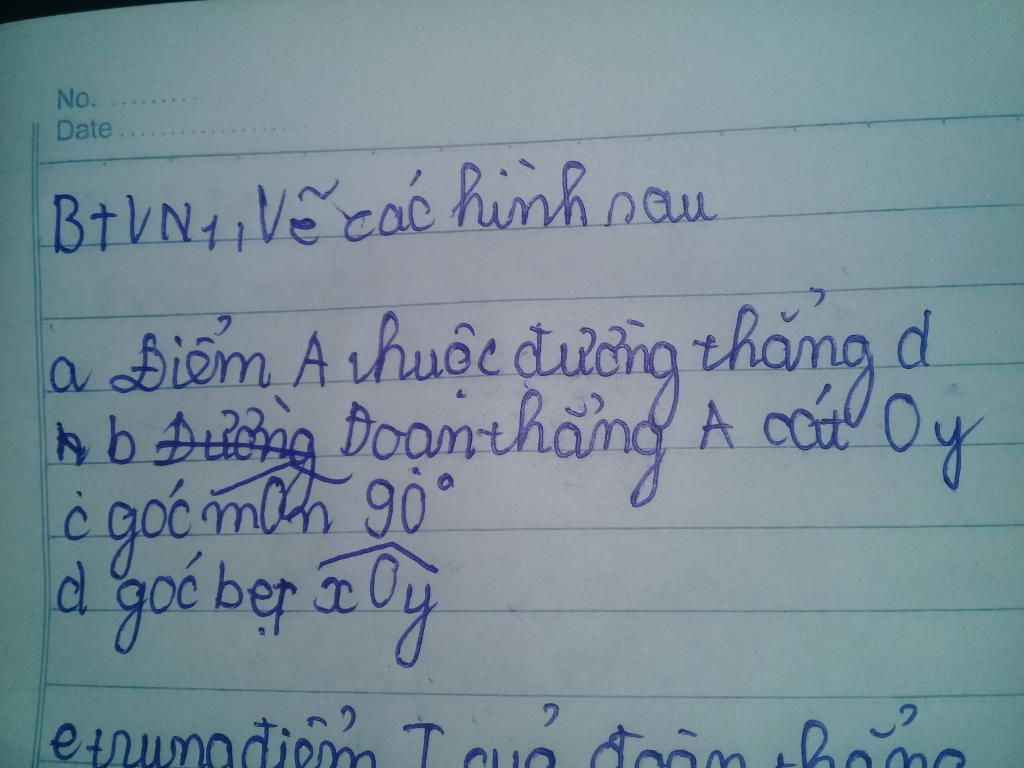 No. ..........
Date ....................
B+VN1, Vẽ các hình sau
a Điểm A thuộc đường thẳng d
b Đường Đoạn thẳng A cắt Oy
c góc mOn 90°
d góc bẹt xOy
e trung điểm I của đoạn thẳng